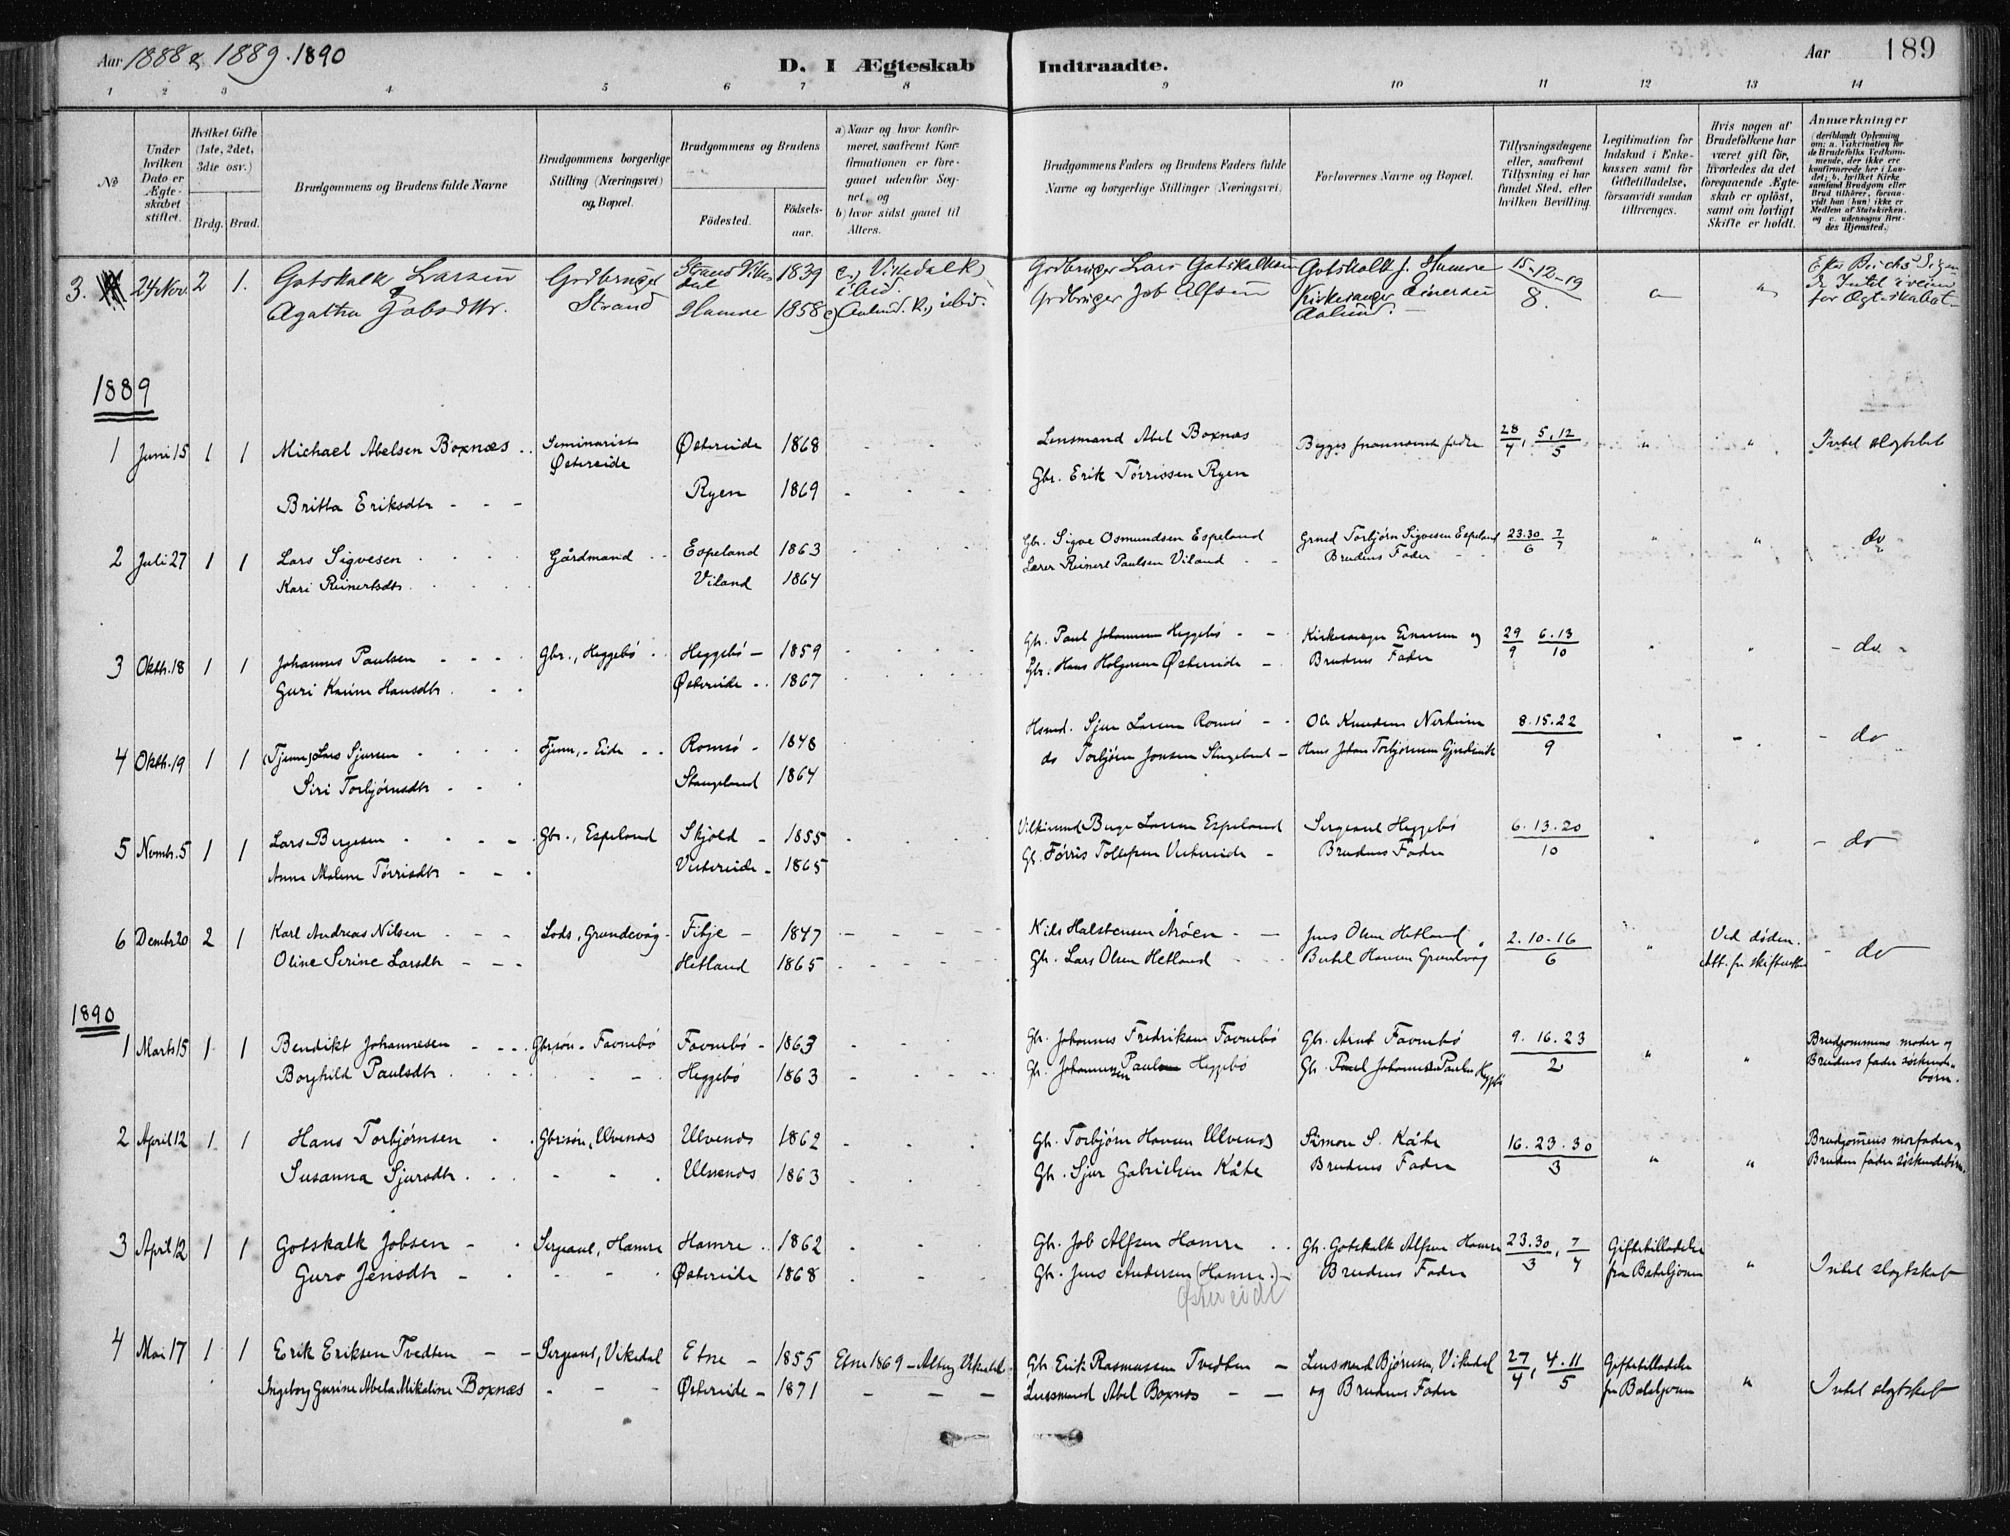 Aar 1888 & 1889. 1890
D. I Ægteskab Indtraadte.
Aar 189
1 2 3 4 5 6 7 8 9 10 11 12 13 14
№
Under hvilken Dato er Ægteskabet stiftet.
Hvilket Gifte (1ste, 2det, 3die osv.)
Brdg. Brud.
Brudgommens og Brudens fulde Navne
Brudgommens borgerlige Stilling (Næringsvei) og Bopæl.
Brudgommens og Brudens
Födested. Födsels-aar.
a) Naar og hvor konfirmeret, saafremt Konfirmationen er foregaaet udenfor Sognet, og
b) hvor sidst gaaet til Alters.
Brudgommens Faders og Brudens Faders fulde Navne og borgerlige Stillinger (Næringsvei)
Forlovernes Navne og Bopæl.
Tillysningsdagene eller, saafremt Tillysning ei har fundet Sted, efter hvilken Bevilling.
Legitimation for Indskud i Enkekassen samt for Giftetilladelse, forsaavidt saadan tiltrænges.
Hvis nogen af Brudefolkene har været gift för, hvorledes da det foregaaende Ægteskab er oplöst, samt om lovligt Skifte er holdt.
Anmærkninger (deriblandt Oplysning om: a. Vakcination for de Brudefolks Vedkommende, der ikke ere konfirmerede her i Landet; b. hvilket Kirkesamfund Brudgom eller Brud tilhörer, forsaavidt han (hun) ikke er Medlem af Statskirken, og c. udensogns Brudes Hjemsted.)
3. 24 Nov. 2 1. Gotskalk Larsen Gårdbruger Strand 1839 Vikedal K. ibid. Gårdbruger Lars Gotskalksen Gotskalk J. Hamre 15-12-19
Agatha Jobsdtr. Hamre 1858 ibid. Gårdbruger Job Alfsen Kirkesanger Einersen 8.
for Ægteskabet
1889
1 Juni 15 1 1 Michael Abelsen Boxnæs Seminarist Østereide Østereide 1868 Lensmand Abel Boxnæs Begges frannævnte fædre 28/4, 5.12/5 " " Intet slægtskab
Britta Eriksdtr Ryen 1869 Gbr. Erik Tørrissen Ryen
2 Juli 27 1 1 Lars Sigvesen Gårdmand Espeland 1863 Gbr. Sigve Osmundsen Espeland Grmd Torbjørn Sigvesen Espeland 23.30/6 7/7 " " do
Kari Reinertsdtr Viland 1864 Lærer Reinert Paulsen Viland Brudens Fader
3 Oktbr. 18 1 1 Johannes Paulsen Gbr., Heggebö Heggebö 1859 Gbr. Paul Johannesen Heggebö Kirkesanger Einersen og 29/9 6.13/10 do.
Guri Karine Hansdtr. Østereide 1867 Gbr. Hans Holgersen Østereide Brudens Fader
4 Oktbr. 19 1 1 (Tjener) Lars Sjursen Tjener, Eide Romsö 1848 Hsmd. Sjur Larsen Romsö Ole Knudsen Nerheim 8.15.22/9 do
Siri Torbjørnsdtr Stangeland 1864 do Torbjørn Jonsen Stangeland Hans Johan Torbjørnsen
5 Novmbr. 5 1 1 Lars Bergesen Gbr., Espeland Skjold 1855 Berge Larsen Espeland Sergeant Heggebö 6.13.20/10 do
Anna Malene Tørrisdtr Vestereide 1865 Gbr. Tørris Tollefsen Vestereide Brudens Fader
6 Dembr. 20 2 1 Karl Andreas Nilsen Lods, Grundevåg Fitje 1847 Nils Halstensen Årøen Jens Olsen Hetland 2.10.16/6 " Ved døden. do
Oline Serine Larsdtr Hetland 1865 Gbr. Lars Olsen Hetland Bertel Hansen Grundevåg Att. fr skifteretten
1890
1 Marts 15 1 1 Bendikt Johannesen Gbrsøn Favnebö Favnebö 1863 Gbr. Johannes Fredriksen Favnebö Gbr. Arnt Favnebö 9.16.23/2 " " Brudgommens moder og
Borghild Paulsdtr Heggebö 1863 Gbr. Johannessen Paulsen Heggebö Gbr. Paul Johannes Paulsen Heggebö Brudens fader söskendebörn.
2 April 12 1 1 Hans Torbjørnsen Gbrsøn, Ulvenæs Ulvenæs 1862 Gbr. Torbjørn Hansen Ulvenæs Simon S. Kåte 16.23.30/3 " " Brudgomens morfader og
Susanna Sjursdtr Ulvenæs 1863 Gbr. Sjur Gabrielsen Kåte Brudens Fader Bruden fader söskendebörn.
3 April 12 1 1 Gotskalk Jobsen Sergeant, Hamre Hamre 1862 Gbr. Job Alfsen Hamre Gbr. Gotskalk Alfsen Hamre 23.30/3, 7/4 Giftetilladelse fra Bataljonen " Intet slægtskab
Guro Jensdtr Østereide 1868 Gbr. Jens Andersen (Hamre.) Brudens Fader
Østereide
4 Mai 17 1 1 Erik Eriksen Tvedten Sergeant, Vikedal Etne 1855 Etne 1869 - Alterg. Vikedal Gbr. Erik Rasmussen Tvedten Lensmand Bjørnsen, Vikedal 27/4, 4.11/5 Giftetilladelse fra Bataljonen " Intet slægtskab
Ingeborg Gurine Abela Mikaline Boxnæs Østereide 1871 Lensmand Abel Boxnæs og Brudens Fader